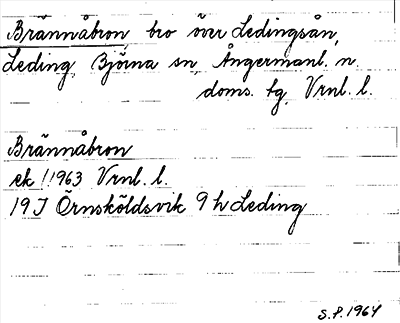 Brännåbron bro över Ledingsån,
Leding, Björna sn, Ångermanl. n.
doms. tg, Vrnl. l.
Brännåbron
ek 1963 Vrnl. l.
19 J Örnsköldsvik 9 h Leding
S.P. 1964